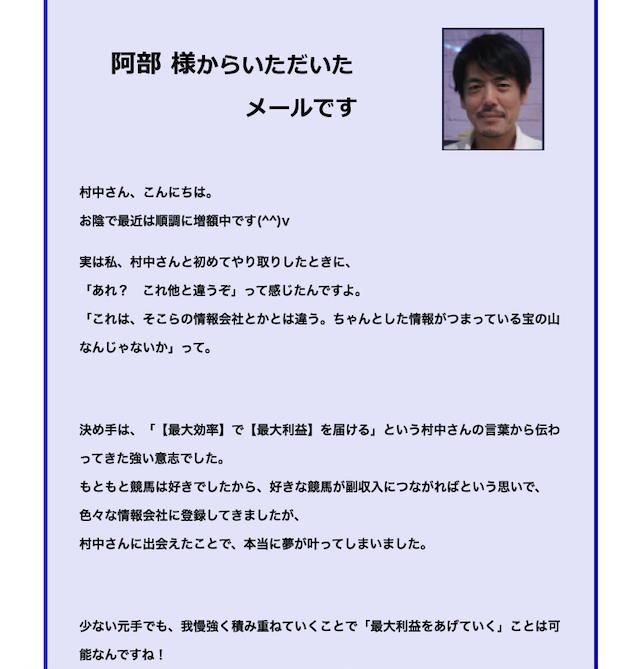 阿部 様からいただいた
メールです
村中さん、こんにちは。
お陰で最近は順調に増額中です(^^)v
実は私、村中さんと初めてやり取りしたときに、
「あれ？　これ他と違うぞ」って感じたんですよ。
「これは、そこらの情報会社とかとは違う。ちゃんとした情報がつまっている宝の山
なんじゃないか」って。
決め手は、「【最大効率】で【最大利益】を届ける」という村中さんの言葉から伝わ
ってきた強い意志でした。
もともと競馬は好きでしたから、好きな競馬が副収入につながればという思いで、
色々な情報会社に登録してきましたが、
村中さんに出会えたことで、本当に夢が叶ってしまいました。
少ない元手でも、我慢強く積み重ねていくことで「最大利益をあげていく」ことは可
能なんですね！